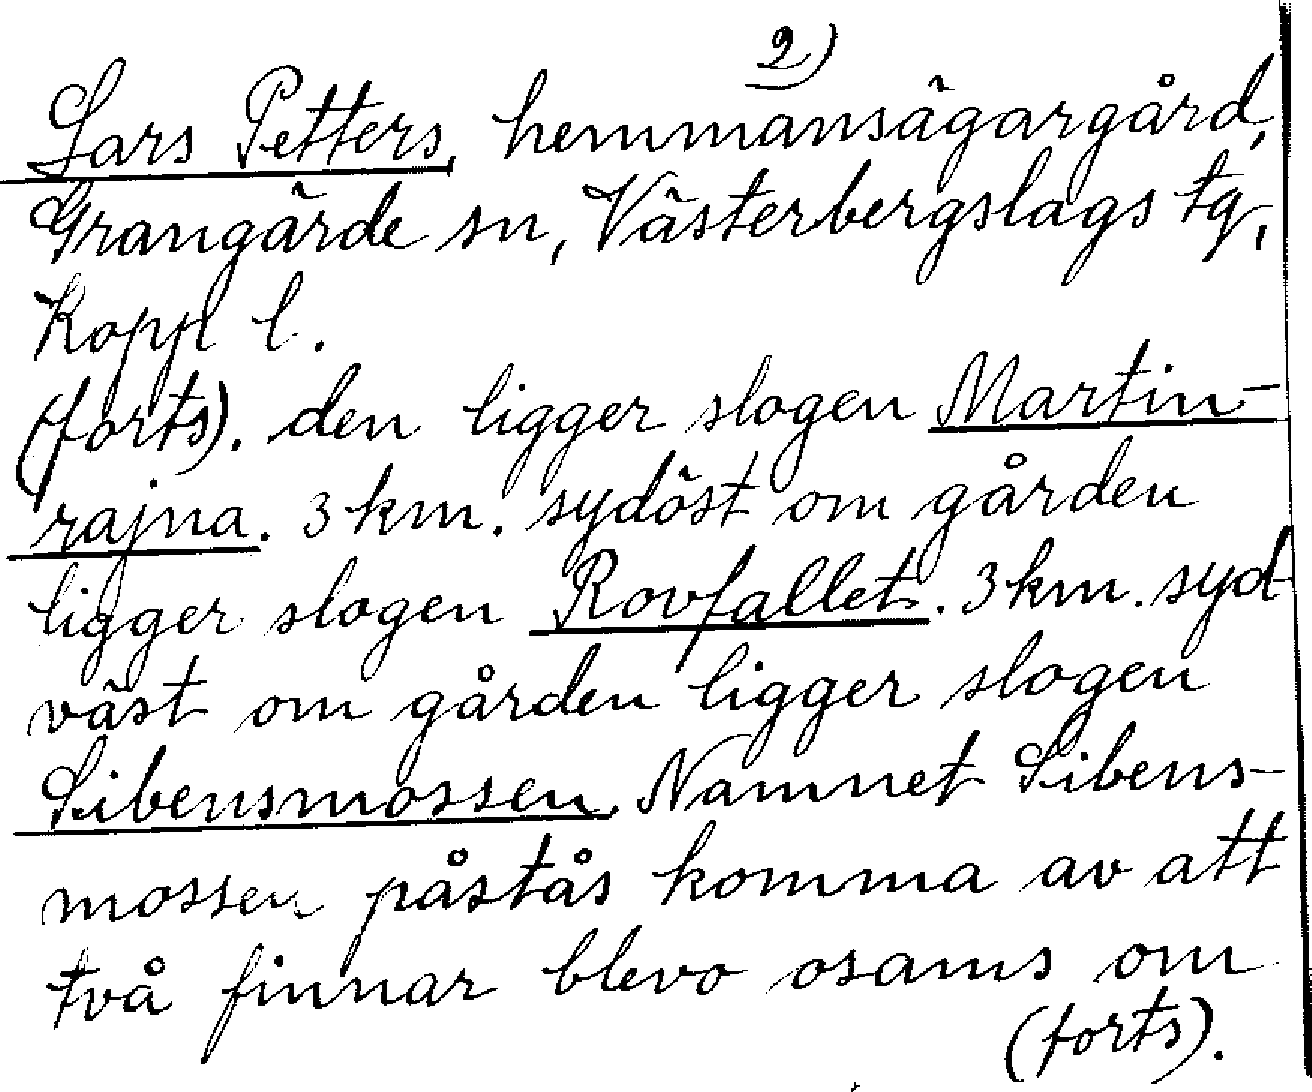 2)
Lars Petters, hemmansägargård,
Grangärde sn, Västerbergslags tg,
Koppl l.
(forts). den ligger slogen Martin-
rajna. 3 km. sydöst om gården
ligger slogen Rovfallet. 3 km. syd
väst om gården ligger slogen
Sibensmossen. Namnet Sibens-
mossen påstås komma av att
två finnar blevo osams om
(forts).